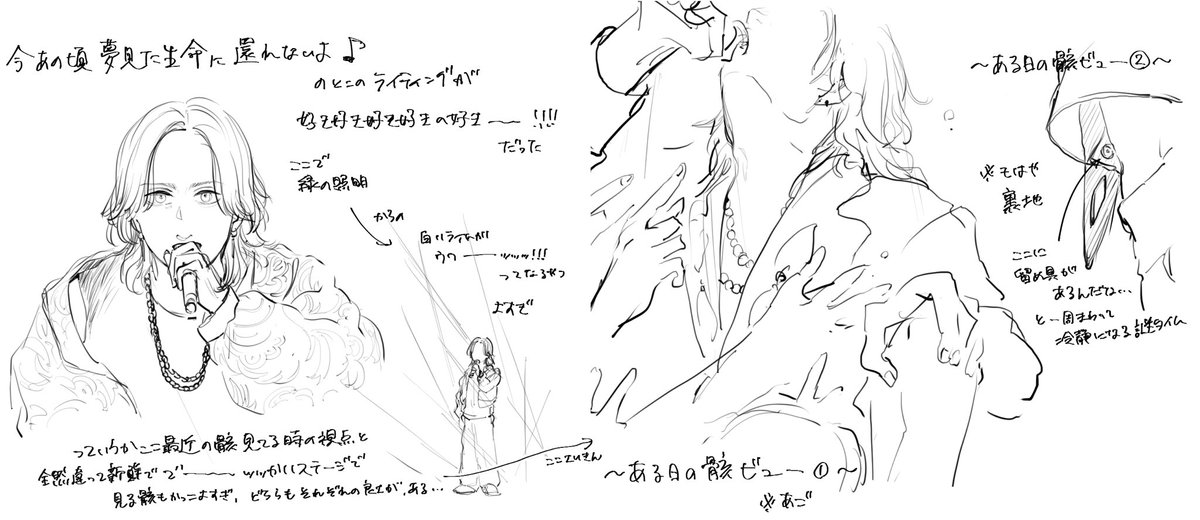 今あの頃 夢見た生命に還れないよ♪
のとこのライティングが
好き好き好き好きの好き〜〜!!!!
だった
ここで
緑の照明
からの
白いライトが
ッッッ!!!
ってなるやつ
よすぎ
っていうかここ最近の骸見てる時の視点と
全然違って新鮮で で〜〜ッッかいステージで
見る骸もかっこよすぎ、どちらもそれぞれの良さが、ある…
〜ある日の骸ビュー①〜
※あご
〜ある日の骸ビュー②〜
※もはや
裏地
ここに
留め具が
あるんだな…
と一周まわって
冷静になる謎タイム